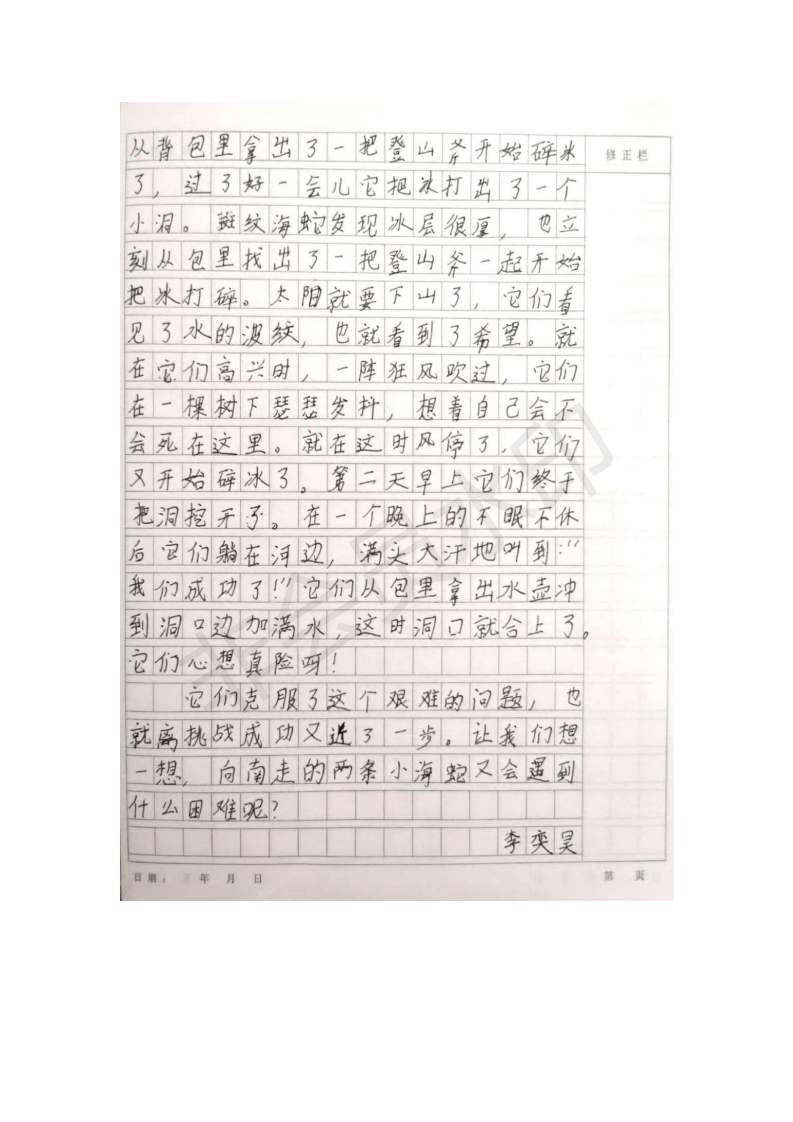 从背包里拿出了一把登山斧开始碎冰
修正栏
了，过了好一会儿它把冰打出了一个
小洞。斑纹海蛇发现冰层很厚，也立
刻从包里找出了一把登山斧一起开始
把冰打碎。太阳就要下山了，它们看
见了水的波纹，也就看到了希望。就
在它们高兴时，一阵狂风吹过，它们
在一棵树下瑟瑟发抖，想着自己会不
会死在这里。就在这时风停了，它们
又开始碎冰了。第二天早上它们终于
把洞挖开了。在一个晚上的不眠不休
后它们躺在河边，满头大汗地叫到：“
我们成功了！”它们从包里拿出水壶冲
到洞口边加满水，这时洞口就合上了。
它们心想真险呀！
它们克服了这个艰难的问题，也
就离挑战成功又近了一步。让我们想
一想，向南走的两条小海蛇又会遇到
什么困难呢？
李奕昊
日期： 年 月 日
第 页
非会员水印